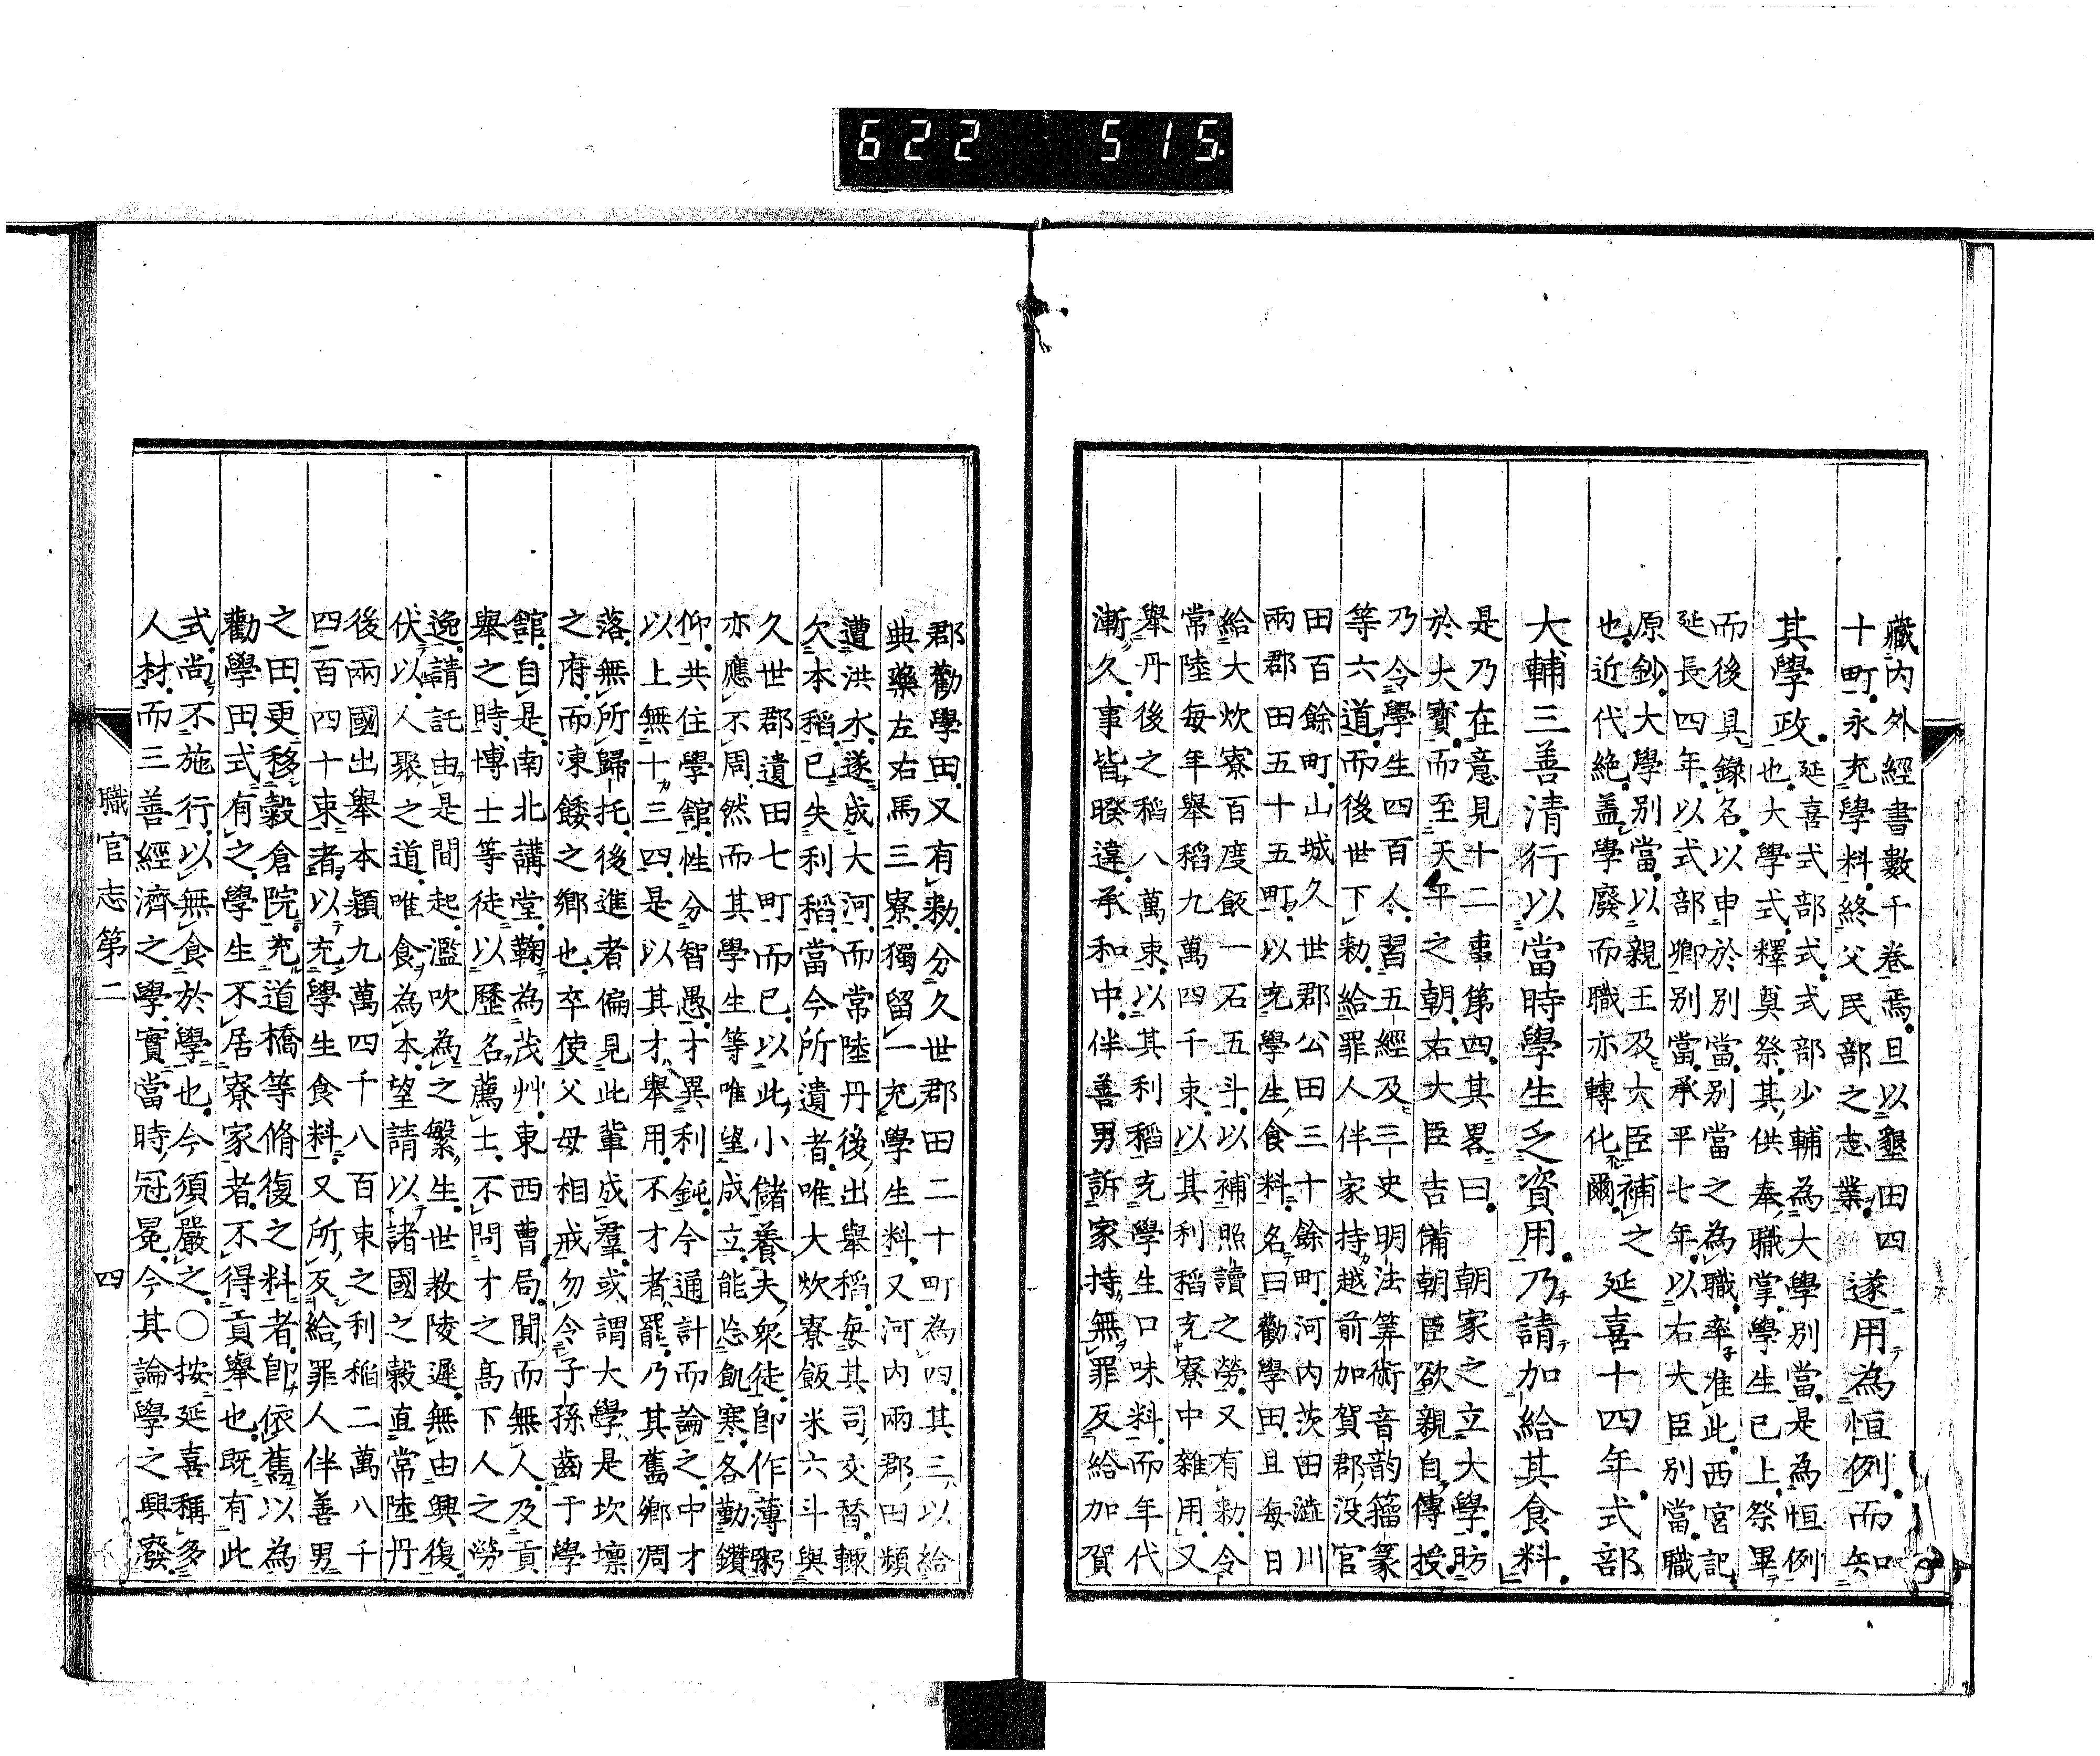 藏内外經書數千卷焉且以墾田四
十町永充學料終父民部之志業
遂用為恒例而知
其學政
延喜式部式式部少輔為大學別當是為恒例
也大學式釋奠祭其供奉職掌學生已上祭畢
而後具錄名以申於別當別當之為職率准此西宮記
延長四年以式部卿別當承平七年以右大臣別當職
原鈔大學別當以親王及大臣補之
也近代絶盖學廢而職亦轉化爾
延喜十四年式部
大輔三善清行以當時學生乏資用乃請加給其食料
是乃在意見十二事第四其畧曰 朝家之立大學肪
於大寶而至天平之朝右大臣吉備朝臣欲親自傳授
乃令學生四百人習五經及三史明法筭術音韵籀篆
等六道而後世下勅給罪人伴家持越前加賀郡没官
田百餘町山城久世郡公田三十餘町河内茨田澁川
兩郡田五十五町以充學生食料名曰勸學田且每日
給大炊寮百度飯一石五斗以補照讀之勞又有勅令
常陸每年舉稻九萬四千束以其利稻充寮中雜用又
舉丹後之稻八萬束以其利稻充學生口味料而年代
漸久事皆暌違承和中伴善男訴家持無罪反給加賀
郡勸學田又有勅分久世郡田二十町為四其三以給
典藥左右馬三寮獨留一充學生料又河内兩郡田頻
遭洪水遂成大河而常陸丹後出舉稻每其司交替輙
欠本稻已失利稻當今所遺者唯大炊寮飯米六斗與
久世郡遺田七町而已以此小儲養夫衆徒卽作薄粥
亦應不周然而其學生等唯望成立能忘飢寒各勤鑽
仰共住學館性分智愚才異利鈍今通計而論之中才
以上無十三四是以其才舉用不才者罷乃其舊鄉凋
落無所歸托後進者偏見此輩成羣或謂大學是坎壈
之府而凍餧之鄉也卒使父母相戒勿令子孫齒于學
館自是南北講堂鞠為茂艸東西曹局閴而無人及貢
舉之時博士等徒以歷名薦士不問才之高下人之勞
逸請託由是間起濫吹為之繁生世教陵遲無由興復
伏以人聚之道唯食為本望請以諸國之穀直常陸丹
後兩國出舉本穎九萬四千八百束之利稻二萬八千
四百四十束者以充學生食料又所反給罪人伴善男
之田更移穀倉院充道橋等脩復之料者卽依舊以為
勸學田式有之學生不居寮家者不得貢舉也既有此
式尚不施行以無食於學也今須嚴之○按延喜稱多
人材而三善經濟之學實當時冠冕今其論學之興廢
職官志第二
四
622 515